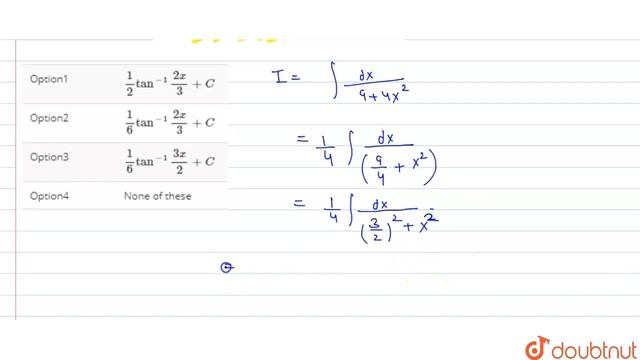 Option1 1/2 tan⁻¹ 2x/3 + C
Option2 1/6 tan⁻¹ 2x/3 + C
Option3 1/6 tan⁻¹ 3x/2 + C
Option4 None of these
I = ∫ dx/(9+4x²)
= 1/4 ∫ dx/(9/4 + x²)
= 1/4 ∫ dx/((3/2)² + x²)
doubtnut